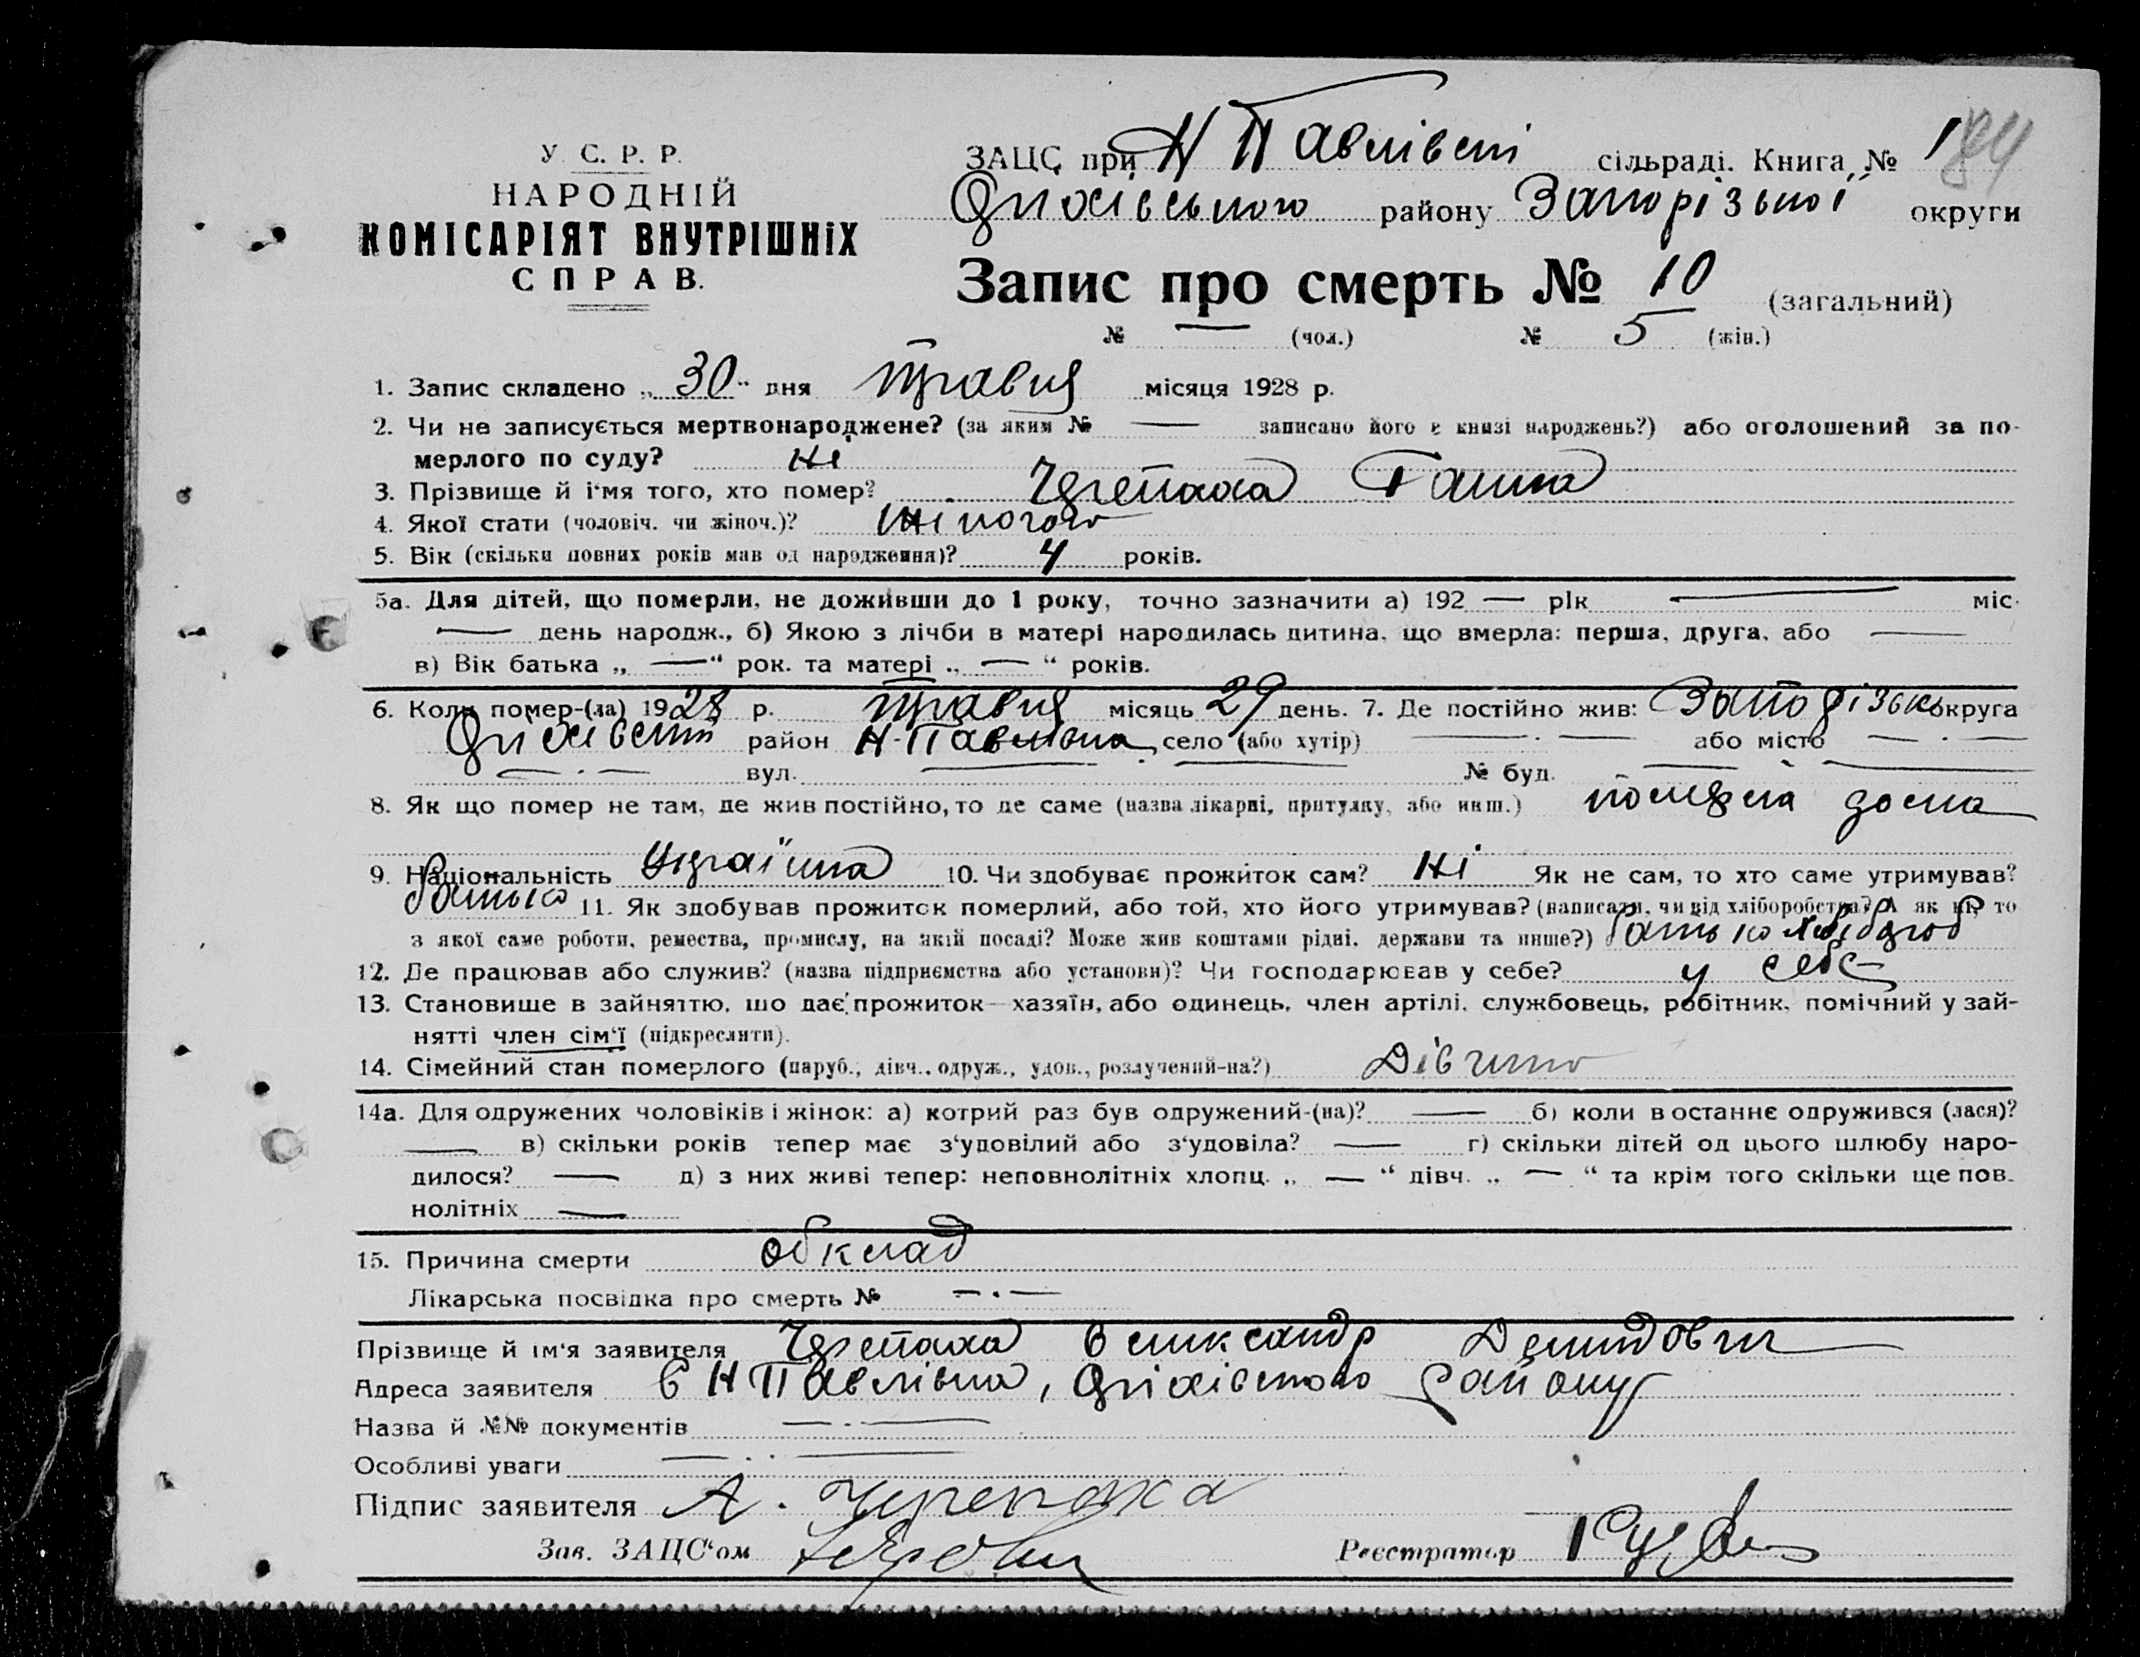 У. С. Р. Р.
НАРОДНІЙ
КОМІСАРІЯТ ВНУТРІШНіХ
СПРАВ.
ЗАЦС при Н Павлівській сільраді. Книга № 1
84
Оріхівського району Запорізької округи
Запис про смерть № 10 (загальний)
№ — (чол.) № 5 (жін.)
1. Запис складено „ 30 “ дня травня місяця 1928 р.
2. Чи не записується мертвонароджене? (за яким № — записано його в книзі народжень?) або оголошений за по-
мерлого по суду? Ні
3. Прізвище й і‘мя того, хто помер? Черепаха Ганна
4. Якої стати (чоловіч. чи жіноч.)? Жіночого
5. Вік (скільки повних років мав од народження)? 4 років.
5а. Для дітей, що померли, не доживши до 1 року, точно зазначити а) 192 — рік — міс.
— день народж., б) Якою з лічби в матері народилась дитина, що вмерла: перша, друга, або —
в) Вік батька „ — “ рок. та матері „ — “ років.
6. Коли помер-(ла) 1928 р. травня місяць 29 день. 7. Де постійно жив: Запорізька округа
Оріхівській район Н-Павлівка село (або хутір) — . — або місто — . —
— . — вул. — . — № буд. — . —
8. Як що помер не там, де жив постійно, то де саме (назва лікарні, притулку, або инш.) померла дома
9. Національність Українка 10. Чи здобуває прожиток сам? Ні Як не сам, то хто саме утримував?
батько 11. Як здобував прожиток померлий, або той, хто його утримував? (написати, чи від хліборобства? А як ні, то
з якої саме роботи, ремества, промислу, на якій посаді? Може жив коштами рідні, держави та инше?) батько хлібороб
12. Де працював або служив? (назва підприємства або установи)? Чи господарював у себе? у себе
13. Становище в зайняттю, що дає прожиток—хазяїн, або одинець, член артілі, службовець, робітник, помічний у зай-
нятті член сім‘ї (підкреслити).
14. Сімейний стан померлого (паруб., дівч., одруж., удов., розлучений-на?) Дівчина
14а. Для одружених чоловіків і жінок: а) котрий раз був одружений-(на)? — б) коли в останнє одружився (лася)?
— в) скільки років тепер має з‘удовілий або з‘удовіла? — г) скільки дітей од цього шлюбу наро-
дилося? — д) з них живі тепер: неповнолітніх хлопц. „ — “ дівч. „ — “ та крім того скільки ще пов.
нолітніх —
15. Причина смерти обклад
Лікарська посвідка про смерть № — . —
Прізвище й ім‘я заявителя Черепаха Олександр Демидович
Адреса заявителя с Н Павлівка, Оріхівського району
Назва й №№ документів — . —
Особливі уваги — . . —
Підпис заявителя А. Черепаха
Зав. ЗАЦС‘ом
Реєстратор